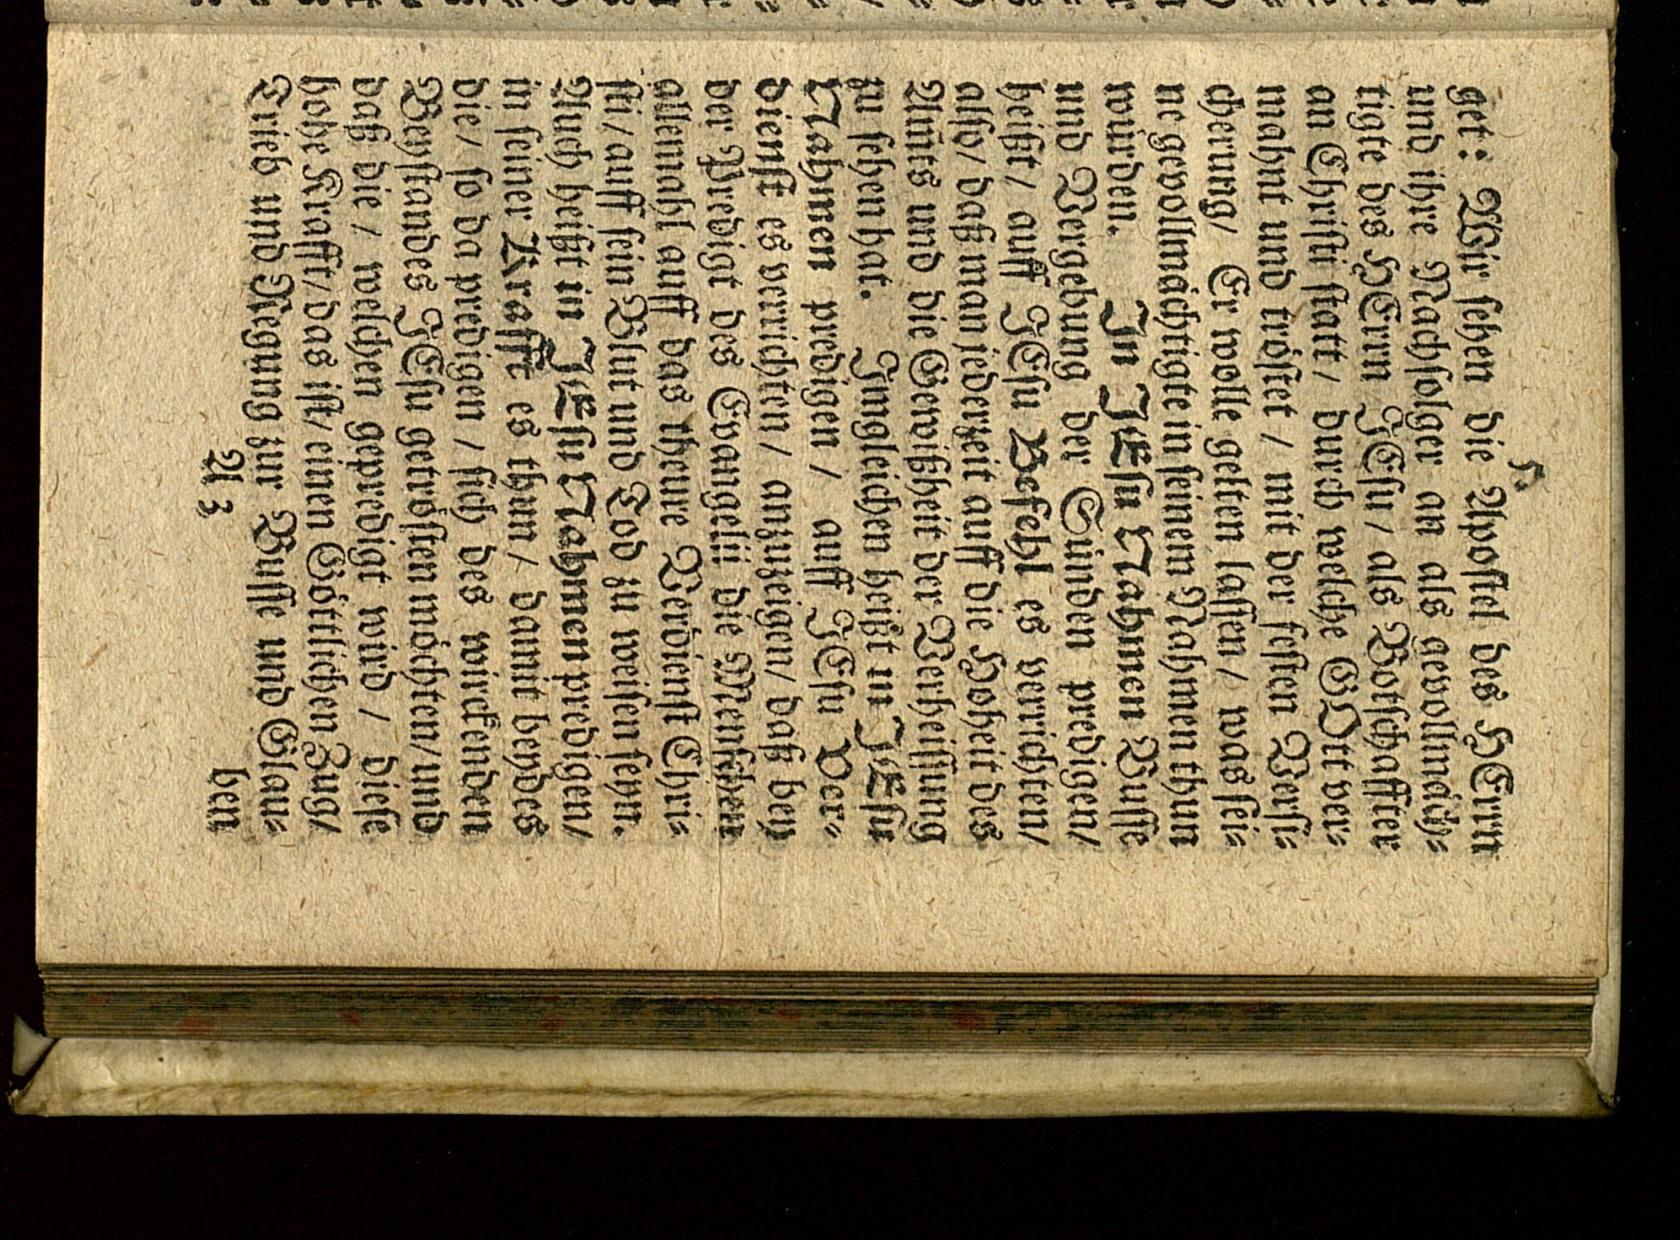 5
get: Wir sehen die Apostel des HErrn
und ihre Nachfolger an als gevollmäch-
tigte des HErrn JEsu / als Botschaffter
an Christi statt / durch welche GOtt ver-
mahnt und tröstet / mit der festen Versi-
cherung / Er wolle gelten lassen / was sei-
ne gevollmächtigte in seinem Nahmen thun
würden. In JEsu Nahmen Busse
und Vergebung der Sünden predigen /
heißt / auff JEsu Befehl es verrichten /
also / daß man jederzeit auff die Hoheit des
Amtes und die Gewißheit der Verheissung
zu sehen hat. Imgleichen heißt in JEsu
Nahmen predigen / auff JEsu Ver-
dienst es verrichten / anzuzeigen / daß bey
der Predigt des Evangelii die Menschen
allemahl auff das theure Verdienst Chri-
sti / auff sein Blut und Tod zu weisen seyn.
Auch heißt in JEsu Nahmen predigen /
in seiner Krafft es thun / damit beydes
die / so da predigen / sich des wirckenden
Beystandes JEsu getrösten möchten / und
daß die / welchen geprediget wird / diese
hohe Krafft / das ist / einen Göttlichen Zug /
Trieb und Regung zur Busse und Glau-
A 3
ben